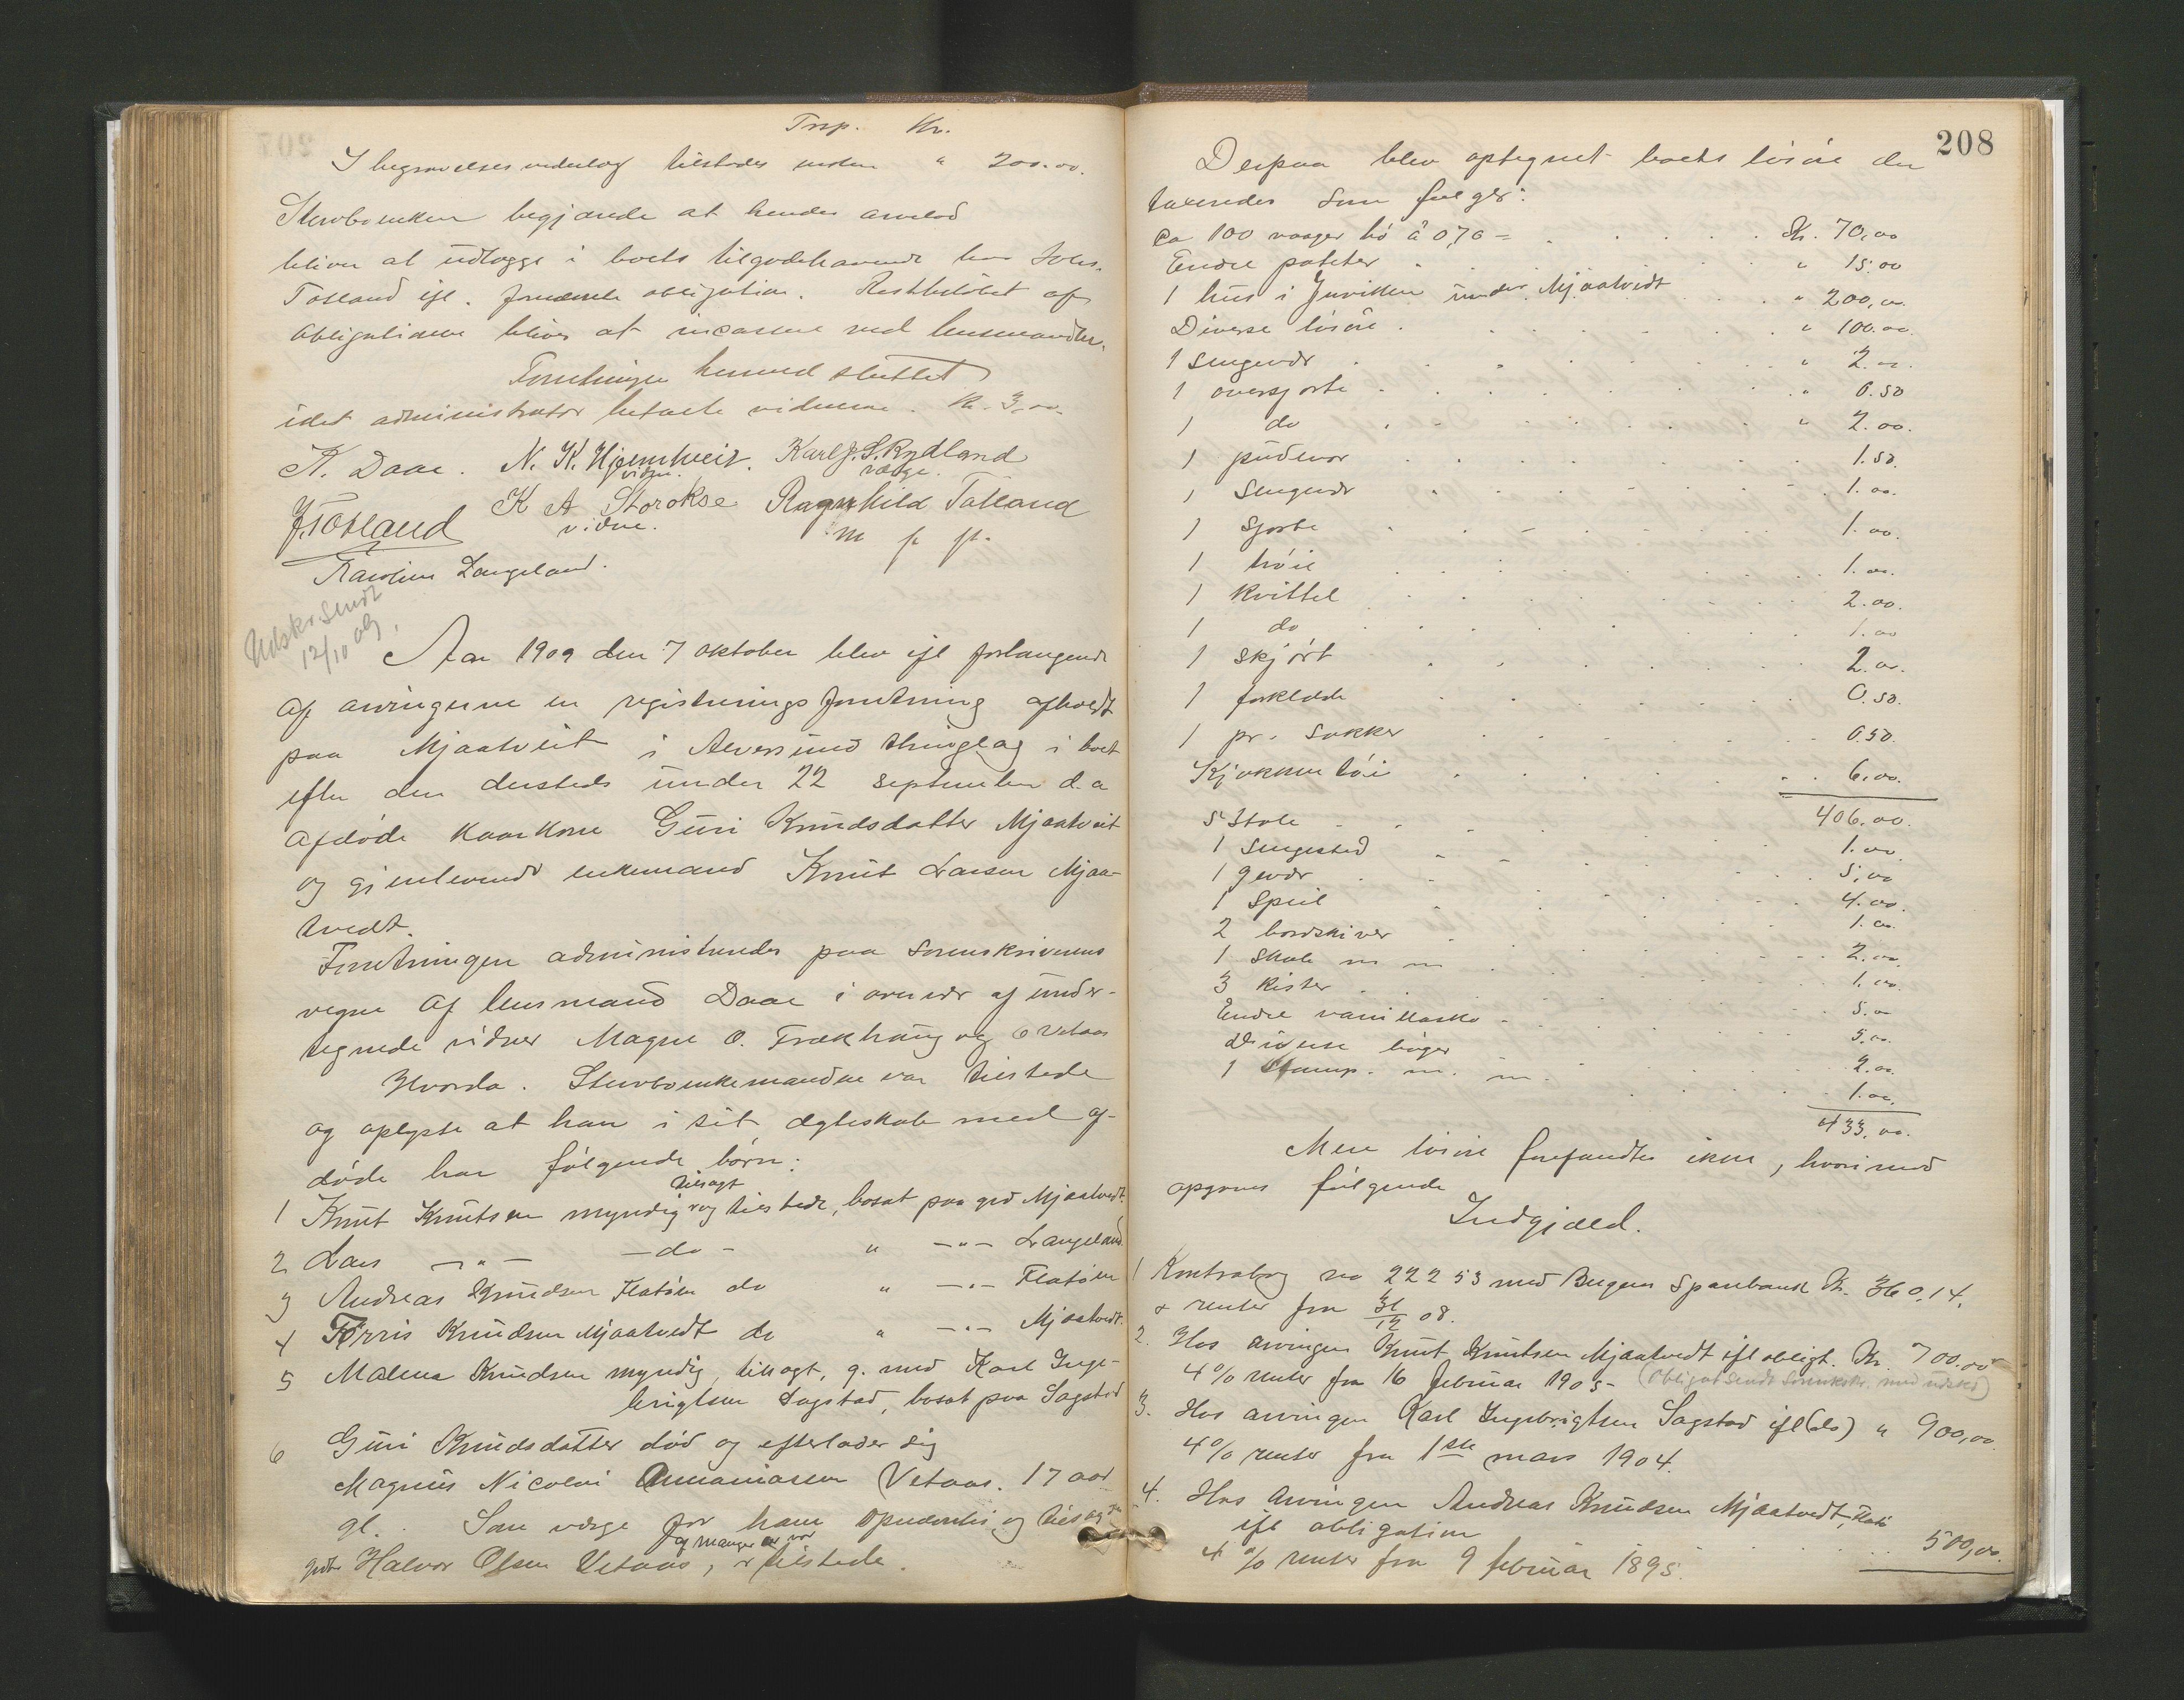 Trsp. Kr.
I begravelsesvederlag tilstodes enken " 200.00.
Stervboenken begjærede at hendes arvelod
bliver at udlægge i boets tilgodehavende hos Johs.
Totland ifl. forannævnte obligation. Restbeløbet af
obligationen bliver at incassere ved lensmanden.
Forretningen hermed sluttet
idet administrator betalte vidnerne. Kr. 3,00.
K. Daae. N. K. Hjelmtveit. Karl J. S. Rydland
vidne. værge.
J. Totland K A Storokse Ragnhild Totland
vidne. m p p.
Karoline Langeland.
Udskr. sendt
12/10 09.
Aar 1909 den 7 oktober blev ifl forlangende
af arvingerne en registreringsforretning afholdt
paa Mjaatveit i Alversund thinglag i boet
efter den dersteds under 22 september d.a
afdøde kaarkone Guri Knudsdatter Mjaatveit
og gjenlevende enkemand Knut Larsen Mjaa-
tvedt.
Forretningen administreredes paa sorenskriverens
vegne af lensmand Daae i overvær af under-
tegnede vidner Magne O. Frækhaug og O Vetaas
Hvorda. Stervboenkemanden var tilstede
og oplyste at han i sit ægteskab med af-
døde har følgende børn:
tilsagt
1 Knut Knutsen myndig og tilstede, bosat paa grd Mjaatvedt.
2 Lars —"— —do— " —"— Langeland.
3 Andreas Knudsen Flatøen do " —"— Flatøen
4 Tørris Knudsen Mjaatvedt do " —"— Mjaatvedt.
5 Malena Knudsen myndig, tilsagt, g. med Karl Inge-
brigtsen Sagstad, bosat paa Sagstad
6 Guri Knudsdatter død og efterlader sig
Magnus Nicolai Annaniassen Vetaas. 17 aar
gl. Som værge for ham opnævntes og tilsagdes
af Manger var
grdbr Halvor Olsen Vetaas, tilstede.
208
Derpaa blev optegnet boets løsøre der
taxeredes som følger:
Ca 100 vaager hø à 0,70 = Kr. 70,00
Endel poteter " 15.00
1 hus i Juvikken under Mjaatvedt " 200,00.
Diverse løsøre " 100.00.
1 sengevær " 2.00.
1 oversjorte " 0.50
1 do " 2.00.
1 pudevor 1.50.
1 sengevær 1.00.
1 sjorte 1.00.
1 trøie 1.00.
1 kvittel 2.00.
1 do 1.00
1 skjørt 2.00.
1 forklæde 0.50.
1 pr. sokker 0.50.
Kjøkkentøi 6.00.
406.00.
5 stole 1.00.
1 sengested 5,00
1 gevær 4.00.
1 speil 1.00.
2 bordskiver 2.00.
1 skab m m 1.00.
3 kister 5.00
Endel 5.00.
Diverse bøger 2.00.
1 stamp. m. m. 1.00.
433.00.
Mere løsøre forefandtes ikke, hvorimod
opgaves følgende
Indgjæld.
1 Kontrabog no 22253 med Bergens Sparebank Kr. 360,14.
+ renter fra 31/12 08.
2. Hos arvingen Knut Knutsen Mjaatvedt ifl obligt. Kr. 700.00
4% renter fra 16 februar 1905- (Obligat sendt Sorenskr. med udskr)
3. Hos arvingen Karl Ingebrigtsen Sagstad ifl (do) " 900,00.
4% renter fra 1ste mars 1904.
4. Hos arvingen Andreas Knudsen Mjaatvedt, Flatø
ifl obligation 500,00.
4% renter fra 9 februar 1895.